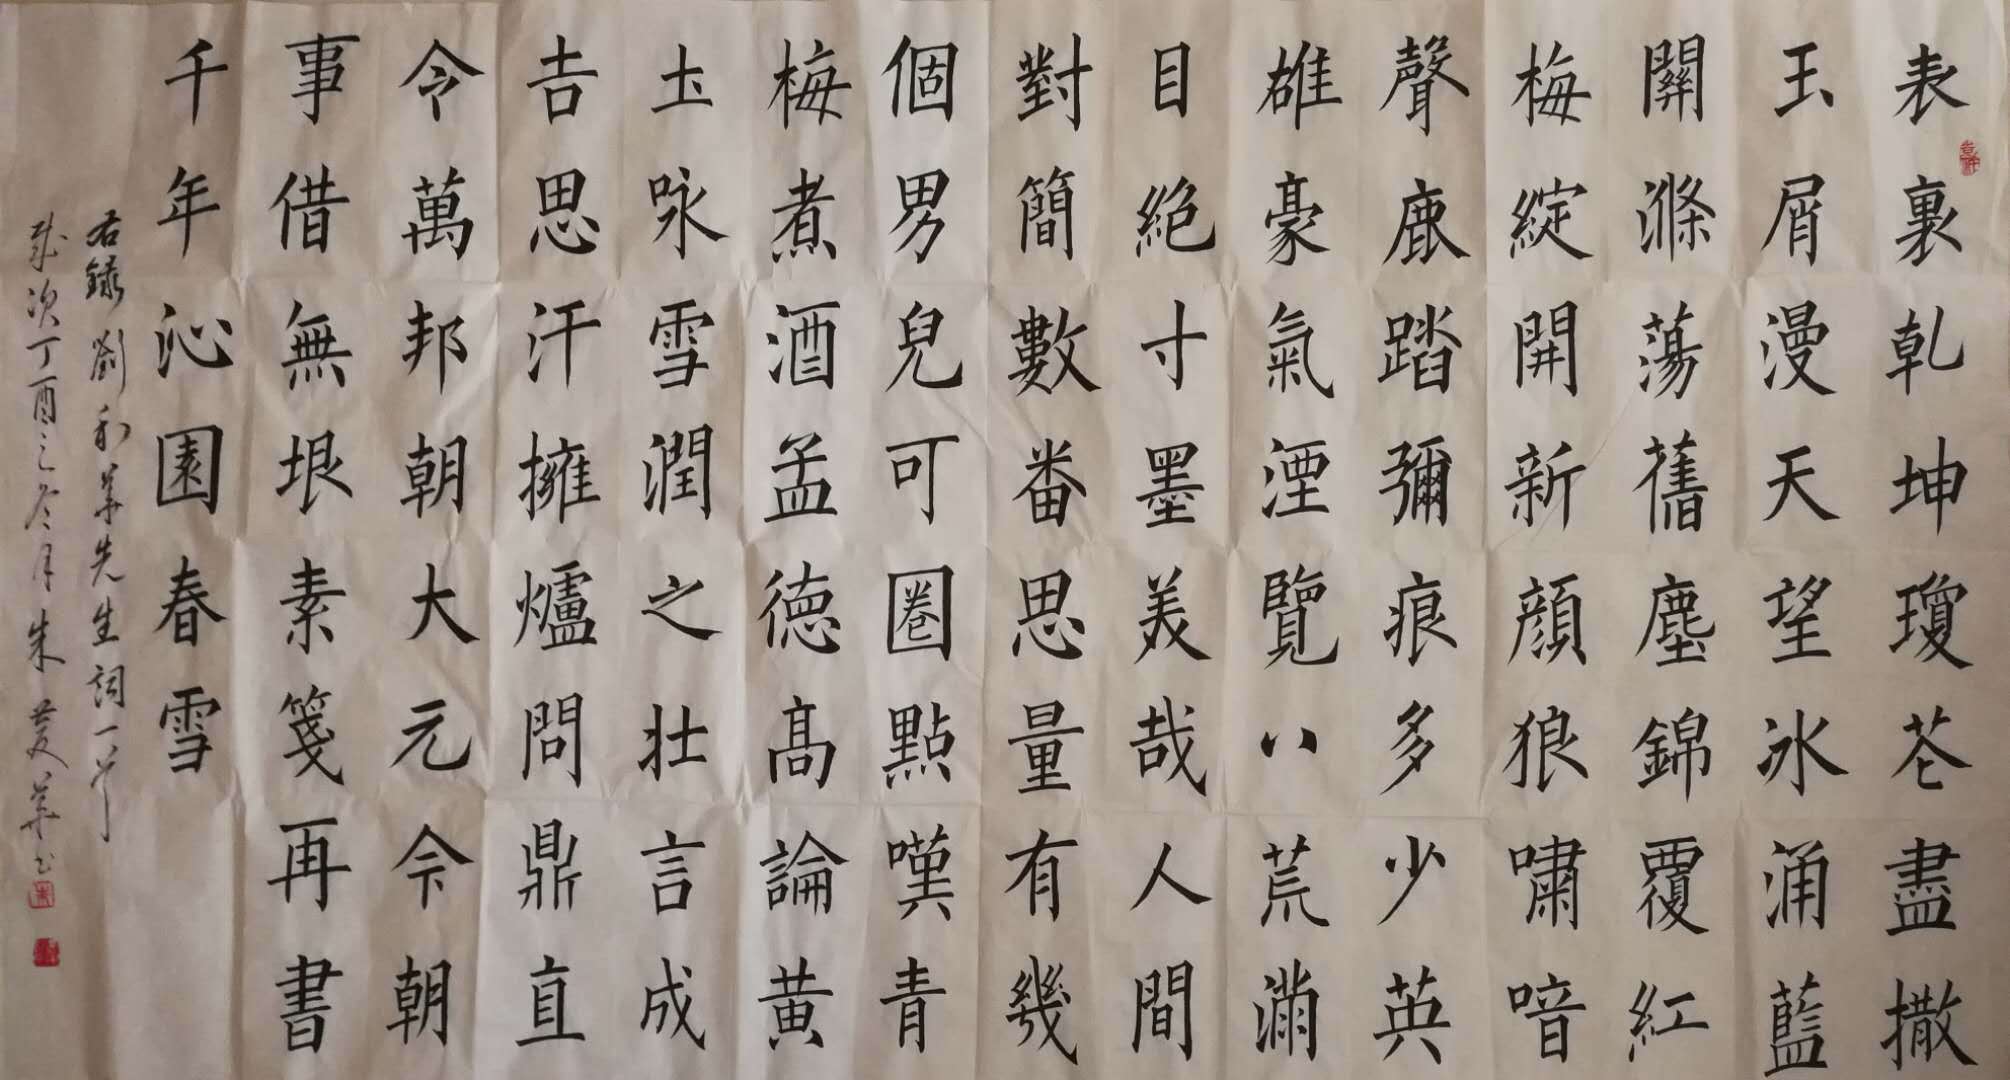 表裏乾坤瓊苍盡撒
玉屑漫天望冰涌藍
關滌蕩舊塵錦覆紅
梅綻開新顔狼嘯喑
聲鹿踏彌痕多少英
雄豪氣湮覽八荒滿
目絶寸墨美哉人間
對簡數番思量有幾
個男兒可圈點嘆青
梅煮酒孟德高論黄
土咏雪潤之壯言成
吉思汗擁爐問鼎直
令萬邦朝大元今朝
事借無垠素箋再書
千年沁園春雪
右録劉和華先生詞一首
歲次丁酉之冬月朱 華書